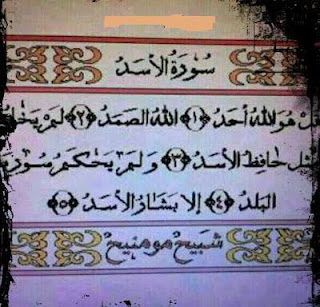 سُورَةُ الأَسَدُ
هُوَ للهُ أَحَدُ ﴿١﴾ اللهُ الصَمَدُ ﴿٢﴾ لَمْ
حَافِظ الأَسَدُ ﴿٣﴾ وَلَمَ يَحْكَمُ
البَلَدُ ﴿٤﴾ إلا بَشَارُ الأَسَدُ ﴿٥﴾
شبيح مو منيح